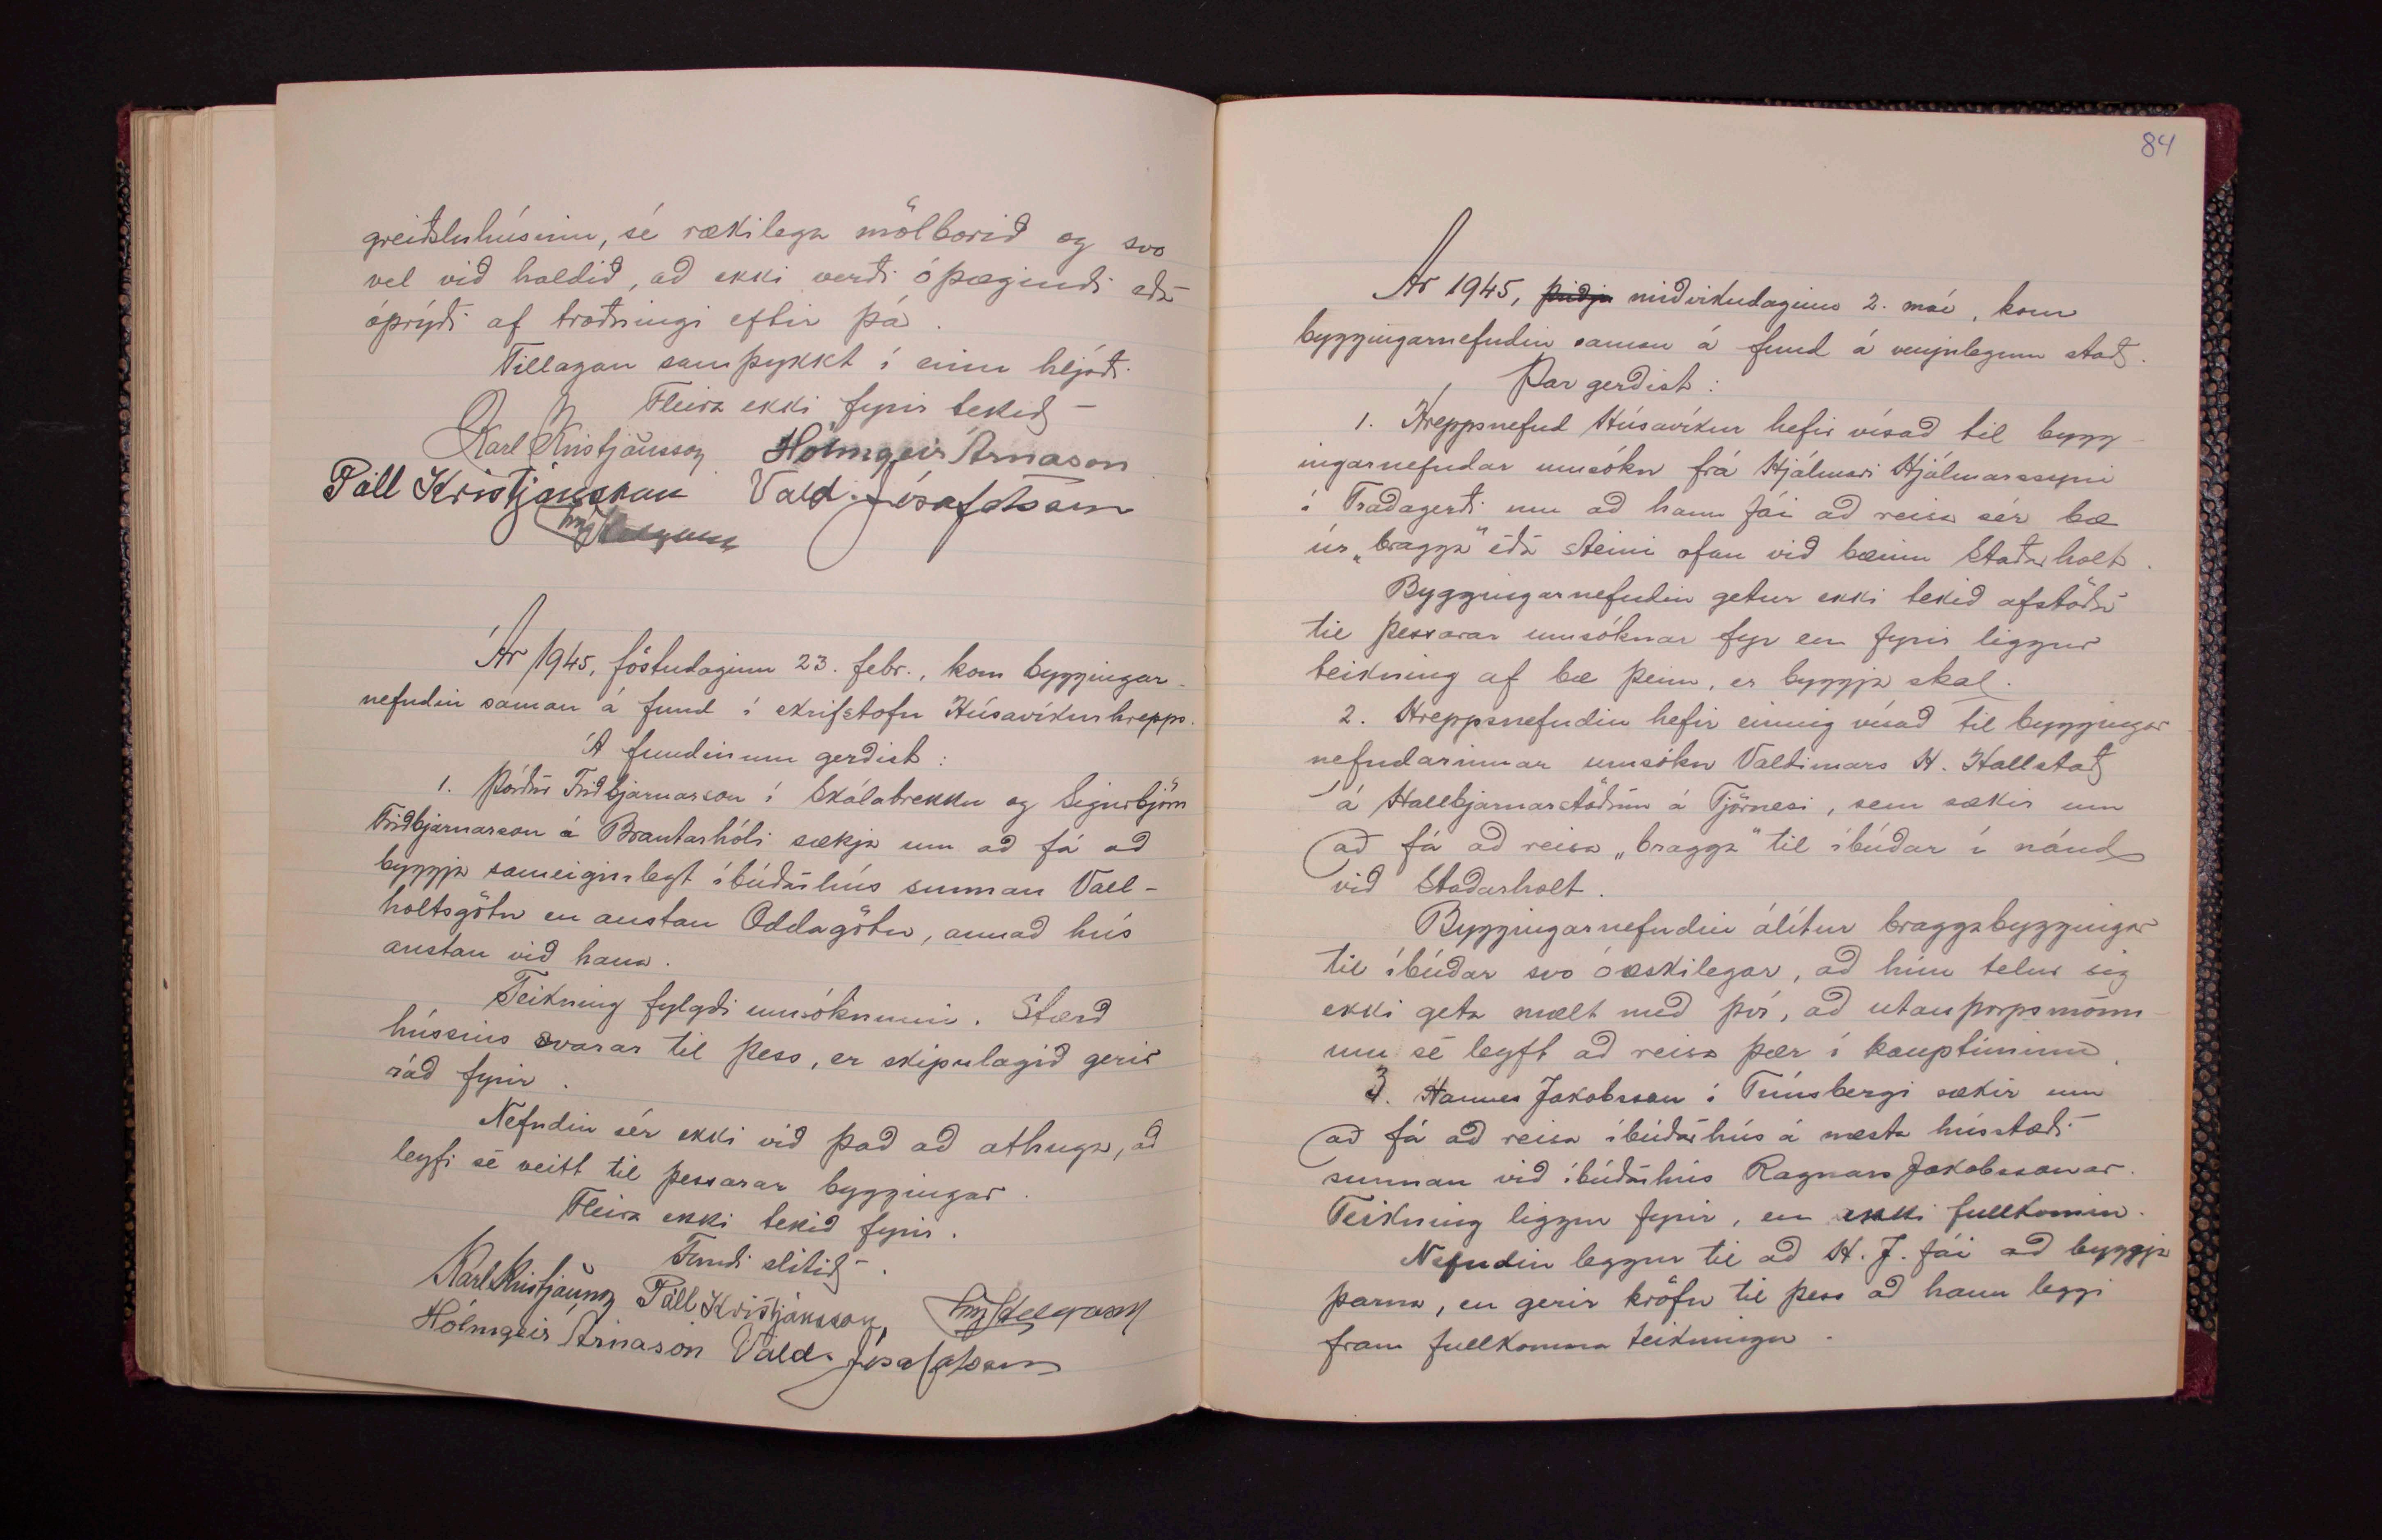 greiðsluhúsinu, sé rækilega mölborið og svo
vel við haldið, að ekki verði óþægindi eða
óprýði af troðningi eftir þá.
Tillagan samþykkt í einu hljóði.
Fleira ekki fyrir tekið –
Karl Kristjánsson Hólmgeir Árnason
Páll Kristjánsson Vald. Jósafatsson
Ár 1945, föstudaginn 23. febr., kom byggingar-
nefndin saman á fund í skrifstofu Húsavíkurhrepps.
Á fundinum gerðist:
1. Þórður Friðbjarnarson í Skálabrekku og Sigurbjörn
Friðbjarnarson á Brautarhóli sækja um að fá að
byggja sameiginlegt íbúðarhús sunnan Vall-
holtsgötu en austan Oddagötu, annað hús
austan við hana.
Teikning fylgdi umsókninni. Stærð
hússins svarar til þess, er skipulagið gerir
ráð fyrir.
Nefndin sér ekki við það að athuga, að
leyfi sé veitt til þessarar byggingar.
Fleira ekki tekið fyrir.
Fundi slitið –.
Karl Kristjánss Páll Kristjánsson,
Hólmgeir Árnason Vald. Jósafatsson
84
Ár 1945, þriðja miðvikudaginn 2. maí, kom
byggingarnefndin saman á fund á venjulegum stað.
Þar gerðist:
1. Hreppsnefnd Húsavíkur hefir vísað til bygg-
ingarnefndar umsókn frá Hjálmari Hjálmarssyni
í Traðagerði um að hann fái að reisa sér bæ
úr „bragga" eða steini ofan við bæinn Staðarholt.
Byggingarnefndin getur ekki tekið afstöðu
til þessarar umsóknar fyr en fyrir liggur
teikning af bæ þeim, er byggja skal.
2. Hreppsnefndin hefir einnig vísað til byggingar
nefndarinnar umsókn Valtimars H. Hallstað
á Hallbjarnarstöðum á Tjörnesi, sem sækir um
að fá að reisa „bragga" til íbúðar í nánd
við Staðarholt.
Byggingarnefndin álítur braggabyggingar
til íbúðar svo óæskilegar, að hún telur sig
ekki geta mælt með því, að utanþorpsmönn-
um sé leyft að reisa þær í kauptúninu.
3. Hannes Jakobsson í Túnsbergi sækir um
að fá að reisa íbúðarhús á næsta hússtæði
sunnan við íbúðarhús Ragnars Jakobssonar.
Teikning liggur fyrir, en ekki fullkomin.
Nefndin leggur til að H. J. fái að byggja
þarna, en gerir kröfu til þess að hann leggi
fram fullkomna teikningu.